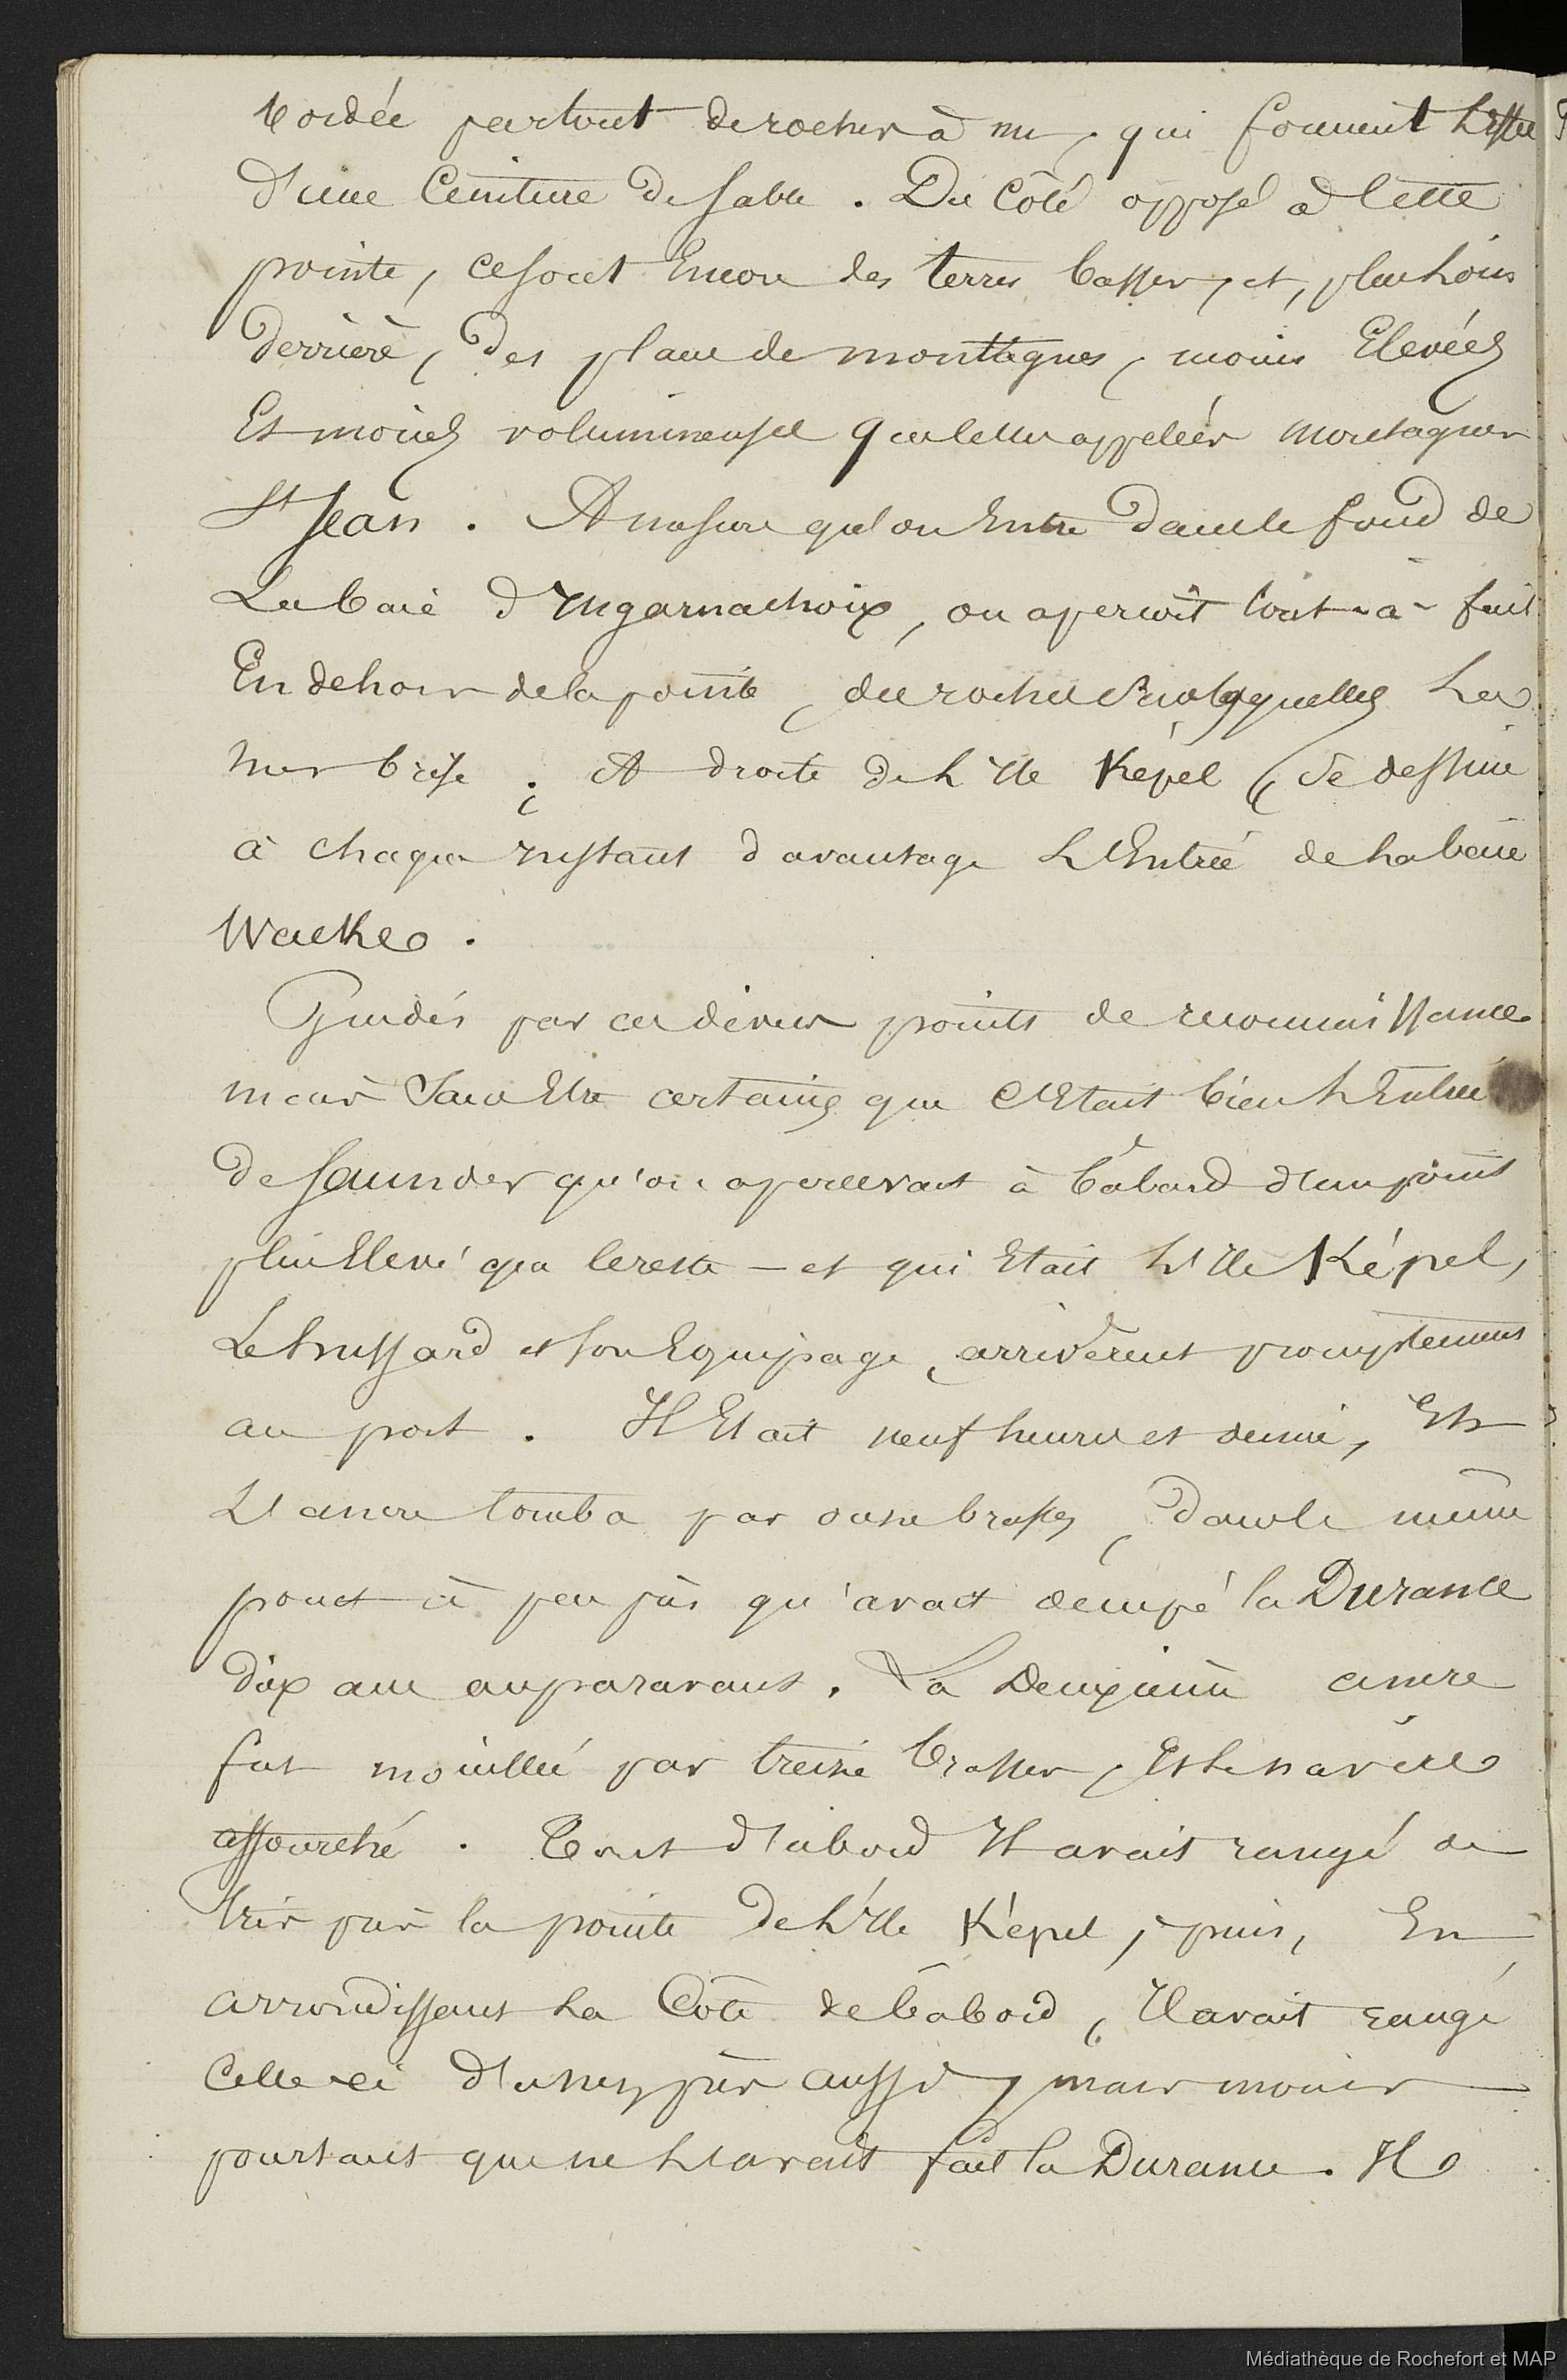 bordée partout de rochers à nu, qui forment l'effet
d'une Ceinture de sable. Du Côté opposé à Cette
pointe, ce sont Encore des terres basses, et, plus loin
derrière, des plans de montagnes, moins Elevées
Et moins volumineuses que celles appelées montagnes
St Jean. A mesure qu'on Entre dans le fond de
La baie d'Ingarnachoix, on aperçoit tout-à-fait
En dehors de la pointe, des roches sur lesquelles La
mer brise ; A droite de L'Ile Képel, se dessine
à chaque Instant davantage L'Entrée de la baie
Wacke.
Guidés par ces divers points de reconnaissance
mais sans Etre certains que C'Etait bien L'Entrée
de Saunder qu'on apercevait à bâbord d'un point
plus Elevé que le reste - et qui Etait L'Ile Képel,
Le hussard et son Equipage, arrivèrent promptement
au port. Il Etait neuf heures et demie, Et
L'ancre tomba par onze brasses, dans le même
point à peu près qu'avait occupé la Durance
dix ans auparavant. La deuxième ancre
fut mouillée par treize brasses, Et le navire
affourché. Tout d'abord Il avait rangé de
très près la pointe de L'Ile Képel, puis, En
arrondissant La Côte de bâbord, Il avait rangé
Celle-ci d'assez près aussi, mais moins
pourtant que ne L'avait fait la Durance. Il
Médiathèque de Rochefort et MAP